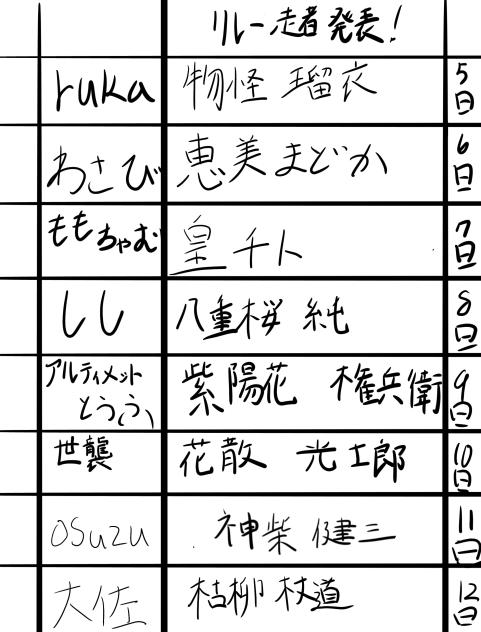 リレー走者発表!
ruka 物怪 瑠衣 5日
わさび 恵美まどか 6日
ももちゃむ 皇 千人 7日
しし 八重桜 純 8日
アルティメットとうふ 紫陽花 権兵衛 9日
世襲 花散 光士郎 10日
osuzu 神柴 健三 11日
大佐 枯柳 杖道 12日